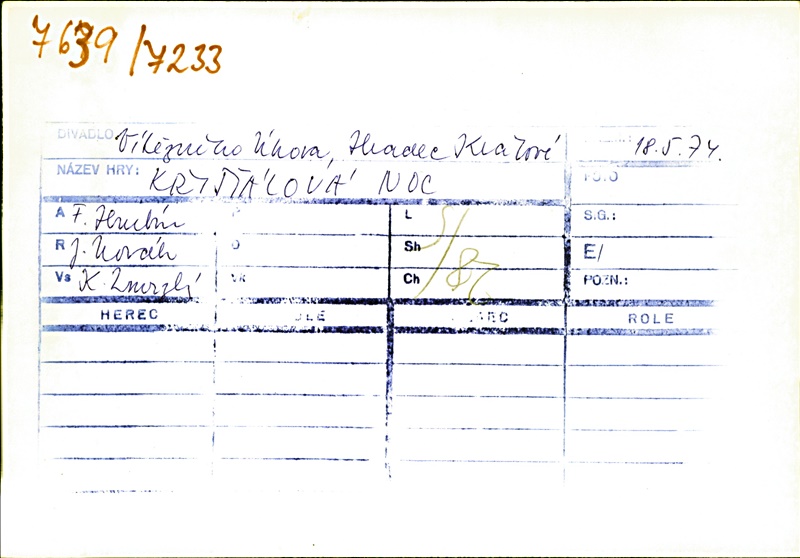 7639/7233
DIVADLO Vítězného Února, Hradec Králové 18.5.74.
NÁZEV HRY: KŘIŠŤÁLOVÁ NOC
A F. Hrubín L S.G.:
R J. Novák O Sh E/
Vs K. Zmrzlý Ch POZN.:
5/85
HEREC ROLE HEREC ROLE